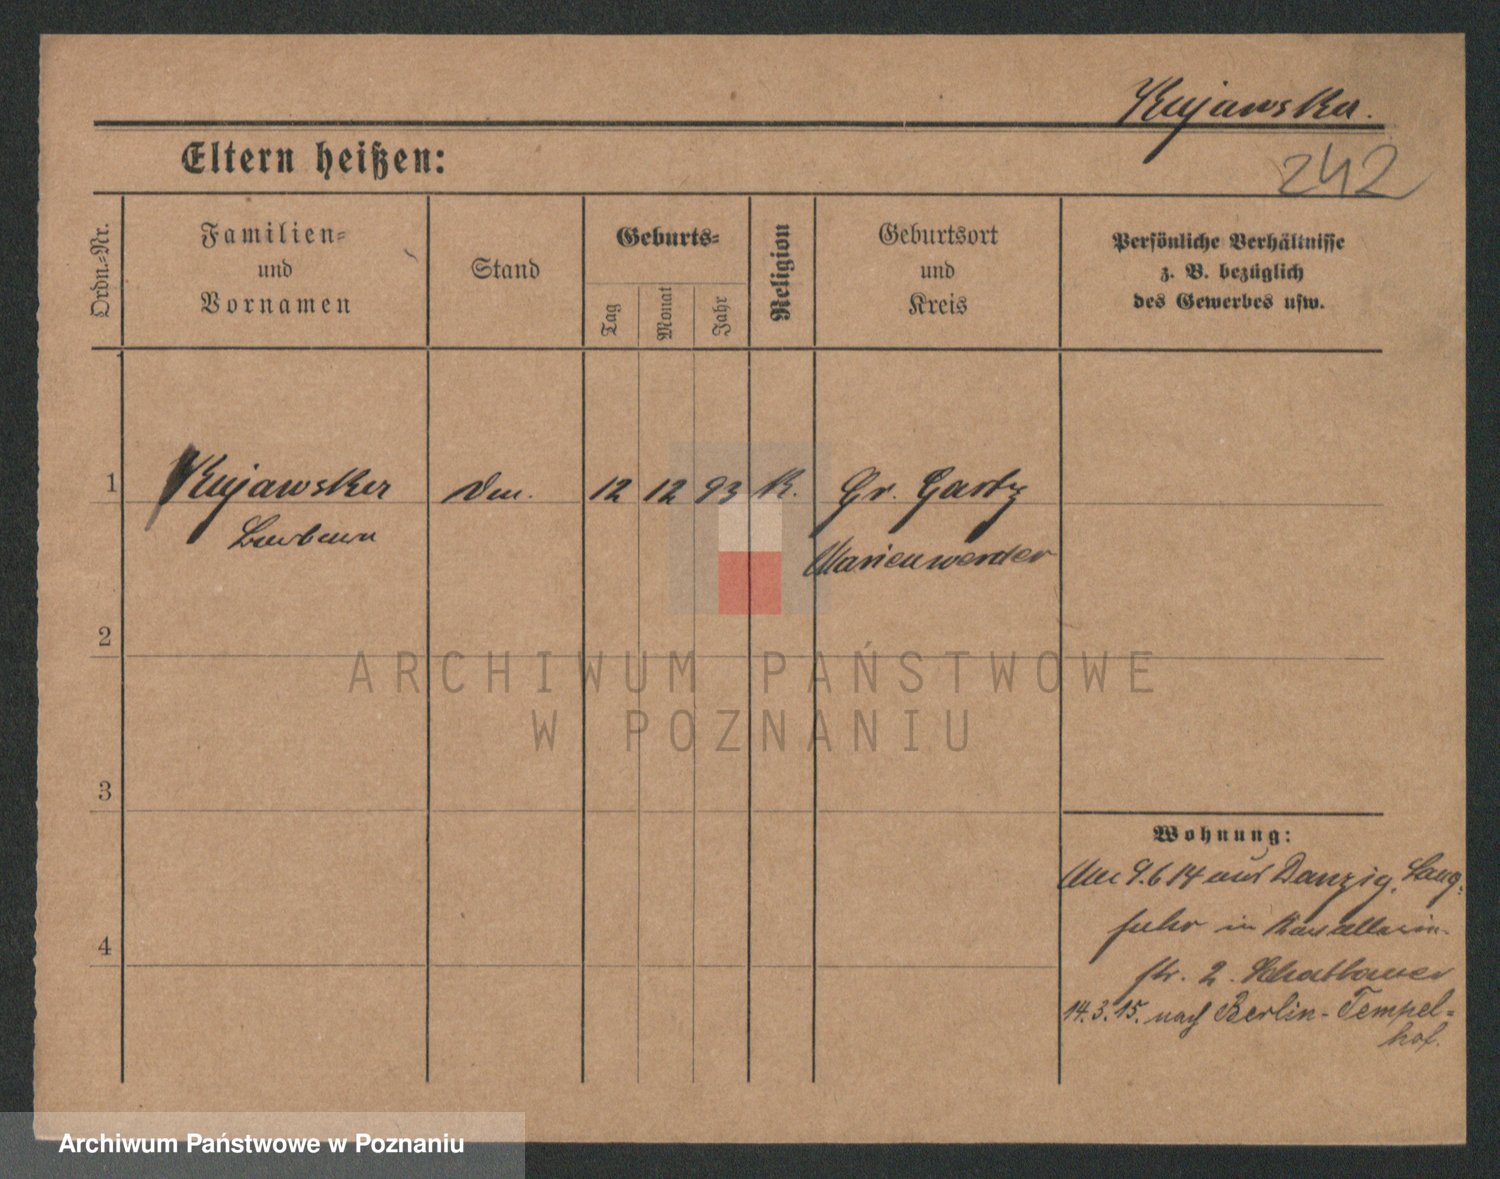 Kujawska.
242
Eltern heißen:
Ordn.-Nr.
Familien-
und
Vornamen
Stand
Geburts-
Tag
Monat
Jahr
Religion
Geburtsort
und
Kreis
Persönliche Verhältnisse
z. B. bezüglich
des Gewerbes usw.
1 Kujawska 12 12 93 K. Gr. Gartz
Barbara
Marienwerder
2
3
4
Wohnung:
Am 9.6.14 aus Danzig, Lang-
fuhr in Kavallerie-
str. 2.
14.3.15. nach Berlin-Tempel-
hof.
ARCHIWUM PAŃSTWOWE
W POZNANIU
Archiwum Państwowe w Poznaniu